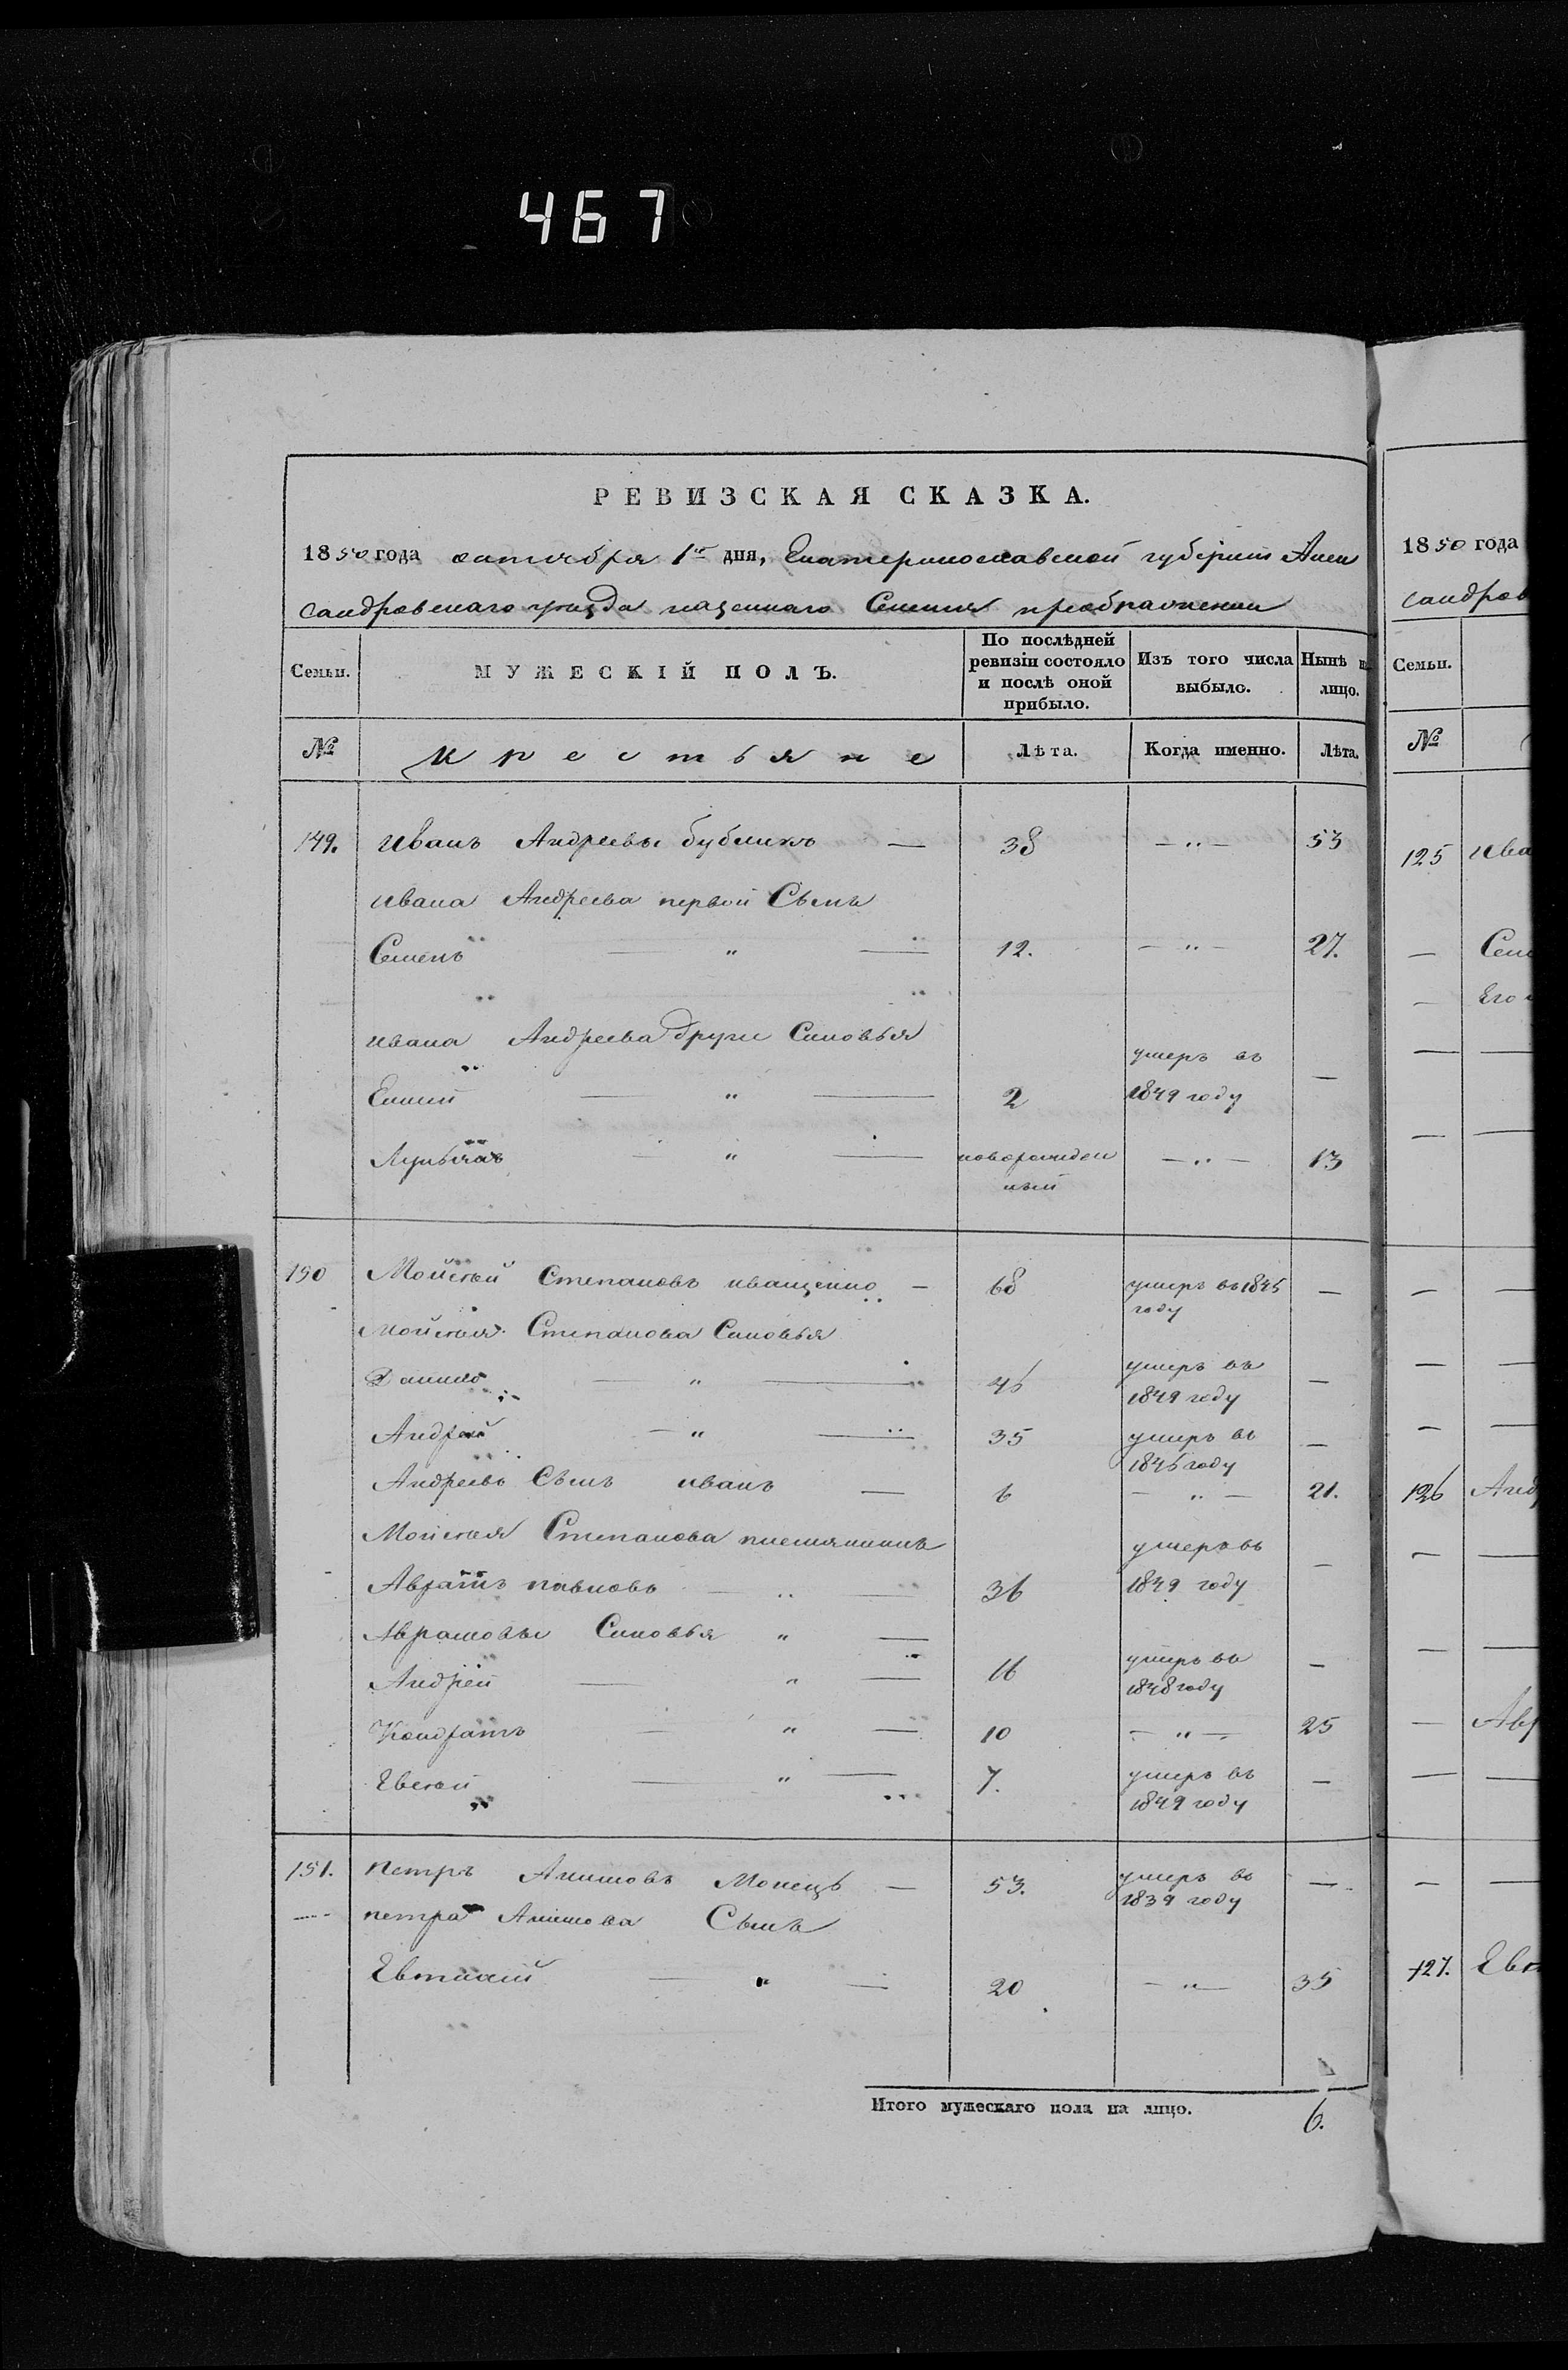 467
РЕВИЗСКАЯ СКАЗКА.
1850 года октября 1го дня, Екатеринославской губернии Алек
сандровскаго уезда казеннаго Селения преображенки
Семьи.
МУЖЕСКІЙ ПОЛЪ.
По послѣдней ревизіи состояло и послѣ оной прибыло.
Изъ того числа выбыло.
Нынѣ на лицо.
№
крестьяне
Лѣта.
Когда именно.
Лѣта.
149. Иванъ Андреевъ бубликъ — 38 — „ — 53
ивана Андреева первой Сынъ
Семенъ — „ — 12. — „ — 27.
ивана Андреева други Синовья
— „ — 2 умеръ въ 1849 году —
Лукьянъ — „ — новорожден ный — „ — 13
150 Мойсей Степановъ иващенко — 68 умеръ въ 1845 году —
Мойсея Степанова Синовья
Данило — „ — 46 умеръ въ 1849 году —
Андрей — „ — 35 умеръ въ 1846 году —
Андреевъ Сынъ иванъ — 6 — „ — 21.
Мойсея Степанова племянникъ
Аврамъ павловъ — „ — 36 умеръ въ 1849 году —
Аврамовы Синовья „ —
Андрей — „ — 16 умеръ въ 1848 году —
Кондратъ — „ — 10 — „ — 25
Евсей — „ — 7. умеръ въ 1849 году —
151. петръ Акимовъ — 53. умеръ въ 1839 году —
петра Акимова Сынъ
— „ — 20 — „ — 35
Итого мужескаго пола на лицо. 6.
1850 года
сандров
Семьи.
№
125 ива
— Сем
— Его
126 Анд
— Авр
127. Евт